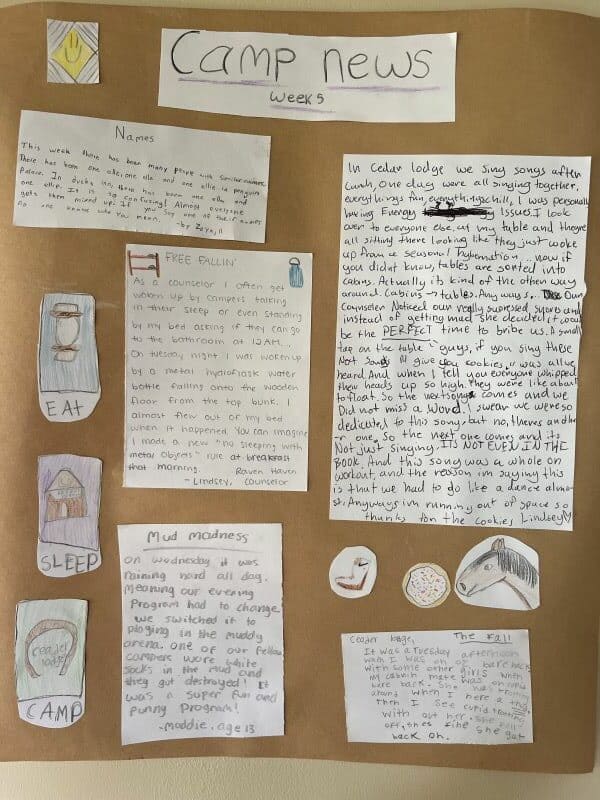 Camp news
Week 5
Names
This week there has been many people with similar names.
There has been one
one ellie. It is so confusing! Almost everyone
gets them mixed up. If you say one of their names
no one knows who you mean.
FREE FALLIN'
As a counselor I often get
woken up by campers talking
in their sleep or even standing
by my bed asking if they can go
to the bathroom at 12AM...
On tuesday night I was woken up
by a metal hydroflask water
bottle falling onto the wooden
floor from the top bunk. I
almost flew out of my bed
when it happened. You can imagine
I made a new "no sleeping with
metal objects" rule at breakfast
that morning.
Raven Haven
- Lindsey, counselor
EAT
SLEEP
ceader
lodge
CAMP
Mud madness
on wednesday it was
raining hard all day.
Meaning our evening
Program had to change.
we switched it to
in the muddy
arena. one of our fellow
campers wore white
socks in the mud and
they got destroyed! It
was a super fun and
funny program!
-Maddie, age 13
In Cedar lodge we sing songs after
Lunch, One day were all singing together,
everythings fun, everythings chill, I was personally
having Energy Issues. I look
over to everyone else at my table and theyre
all sitting there looking like they just woke
up from a seasonal hybernation... now if
you didnt know, tables are sorted into
cabins. Actually its kind of the other way
around. Cabins → tables. Any ways... Our
Counselor Noticed our really supressed squad and
instead of getting mad she decided it would
be the PERFECT time to bribe us. A small
tap on the table "guys, if you sing these
Next Songs Ill give you cookies," was all we
heard. And when I tell you everyone whipped
their heads up so high. They were like about
to float. So the next song comes and we
Did not miss a word. I swear we were so
dedicated to this song. but no, theres anothe
-r one. So the next one comes and its
Not just singing. ITS NOT EVEN IN THE
BOOK. And this song was a whole on
workout, and the reason im saying this
is that we had to do like a dance almo
st. Anyways im running out of space so
thanks for the cookies Lindsey♡
Ceader lodge,
The Fall
It was a Tuesday afternoon
when I was on of bare back
with some other girls when
my cabin mate was on
bare back. She was troting
around when I here a thug
then I see cupid troting
with out her. she fell
off, shes fine she got
back on.